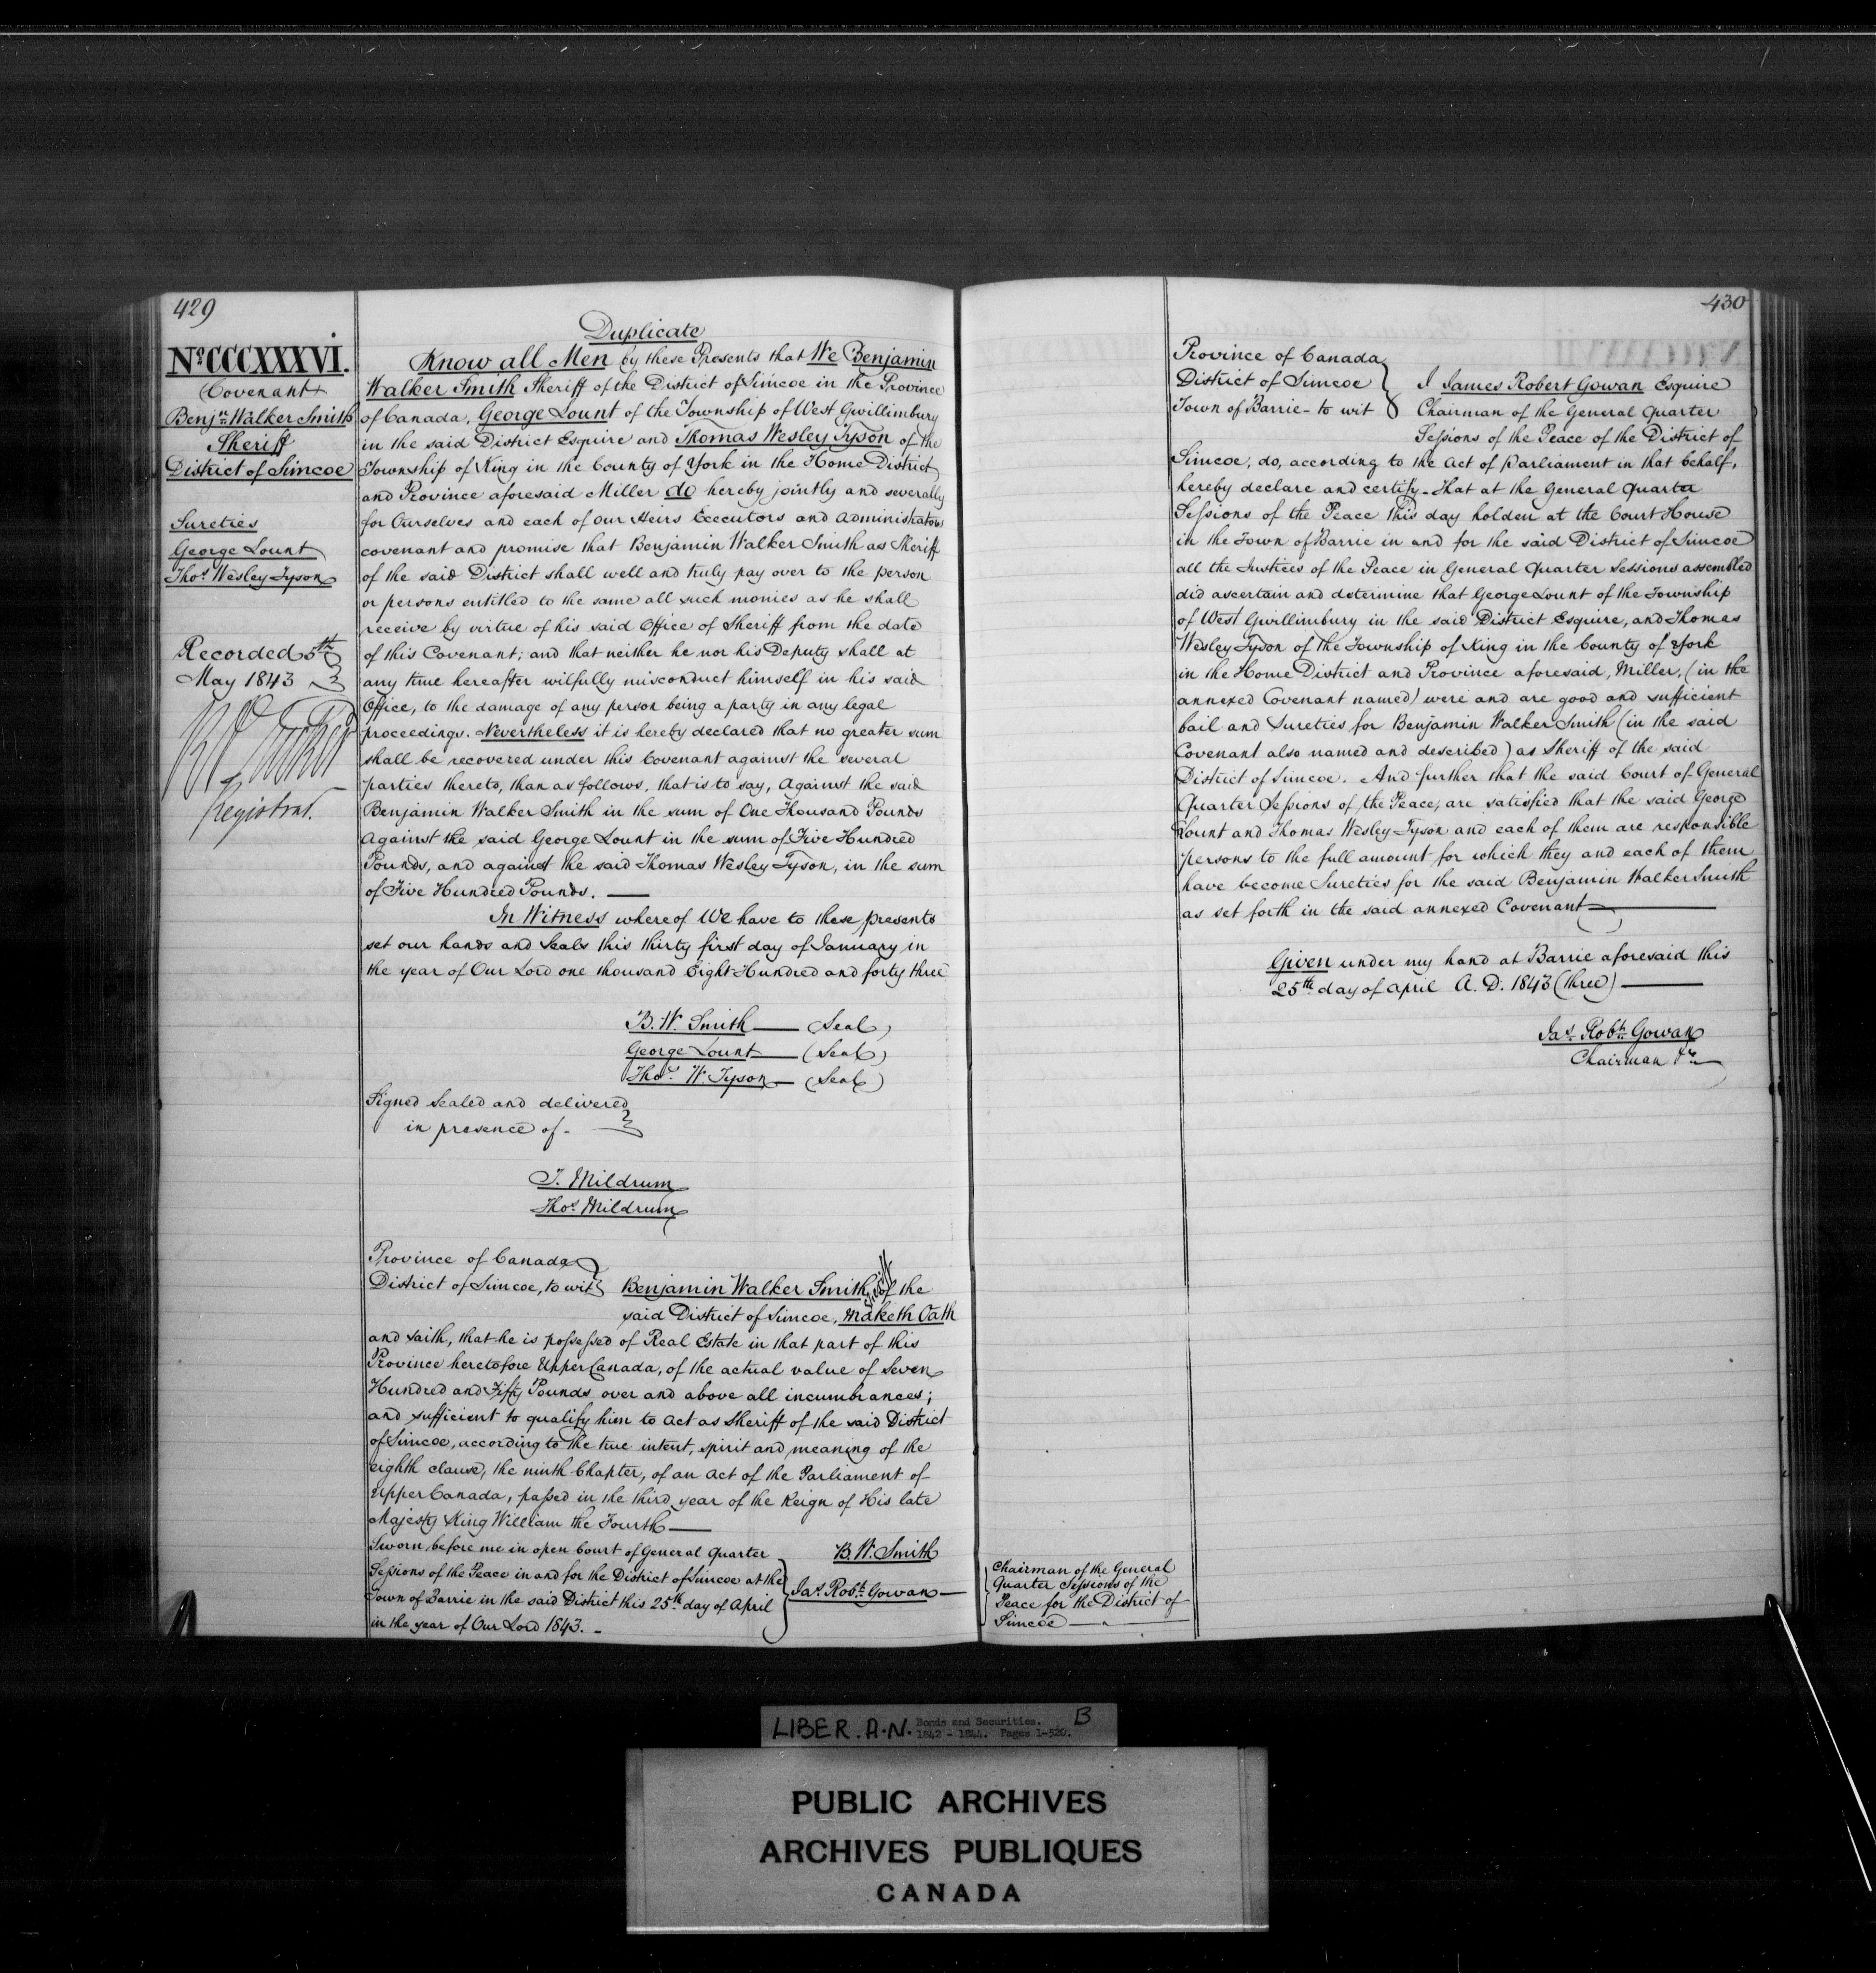 429
No. CCCXXXVI.
Covenant
Benjn. Walker Smith
Sheriff
District of Simcoe
Sureties
George Lount
Thos. Wesley Tyson
Recorded 5th
May 1843
Registrar.
Duplicate
Know all Men by these Presents that We Benjamin
Walker Smith Sheriff of the District of Simcoe in the Province
of Canada, George Lount of the Township of West Gwillimbury
in the said District Esquire and Thomas Wesley Tyson of the
Township of King in the County of York in the Home District
and Province aforesaid Miller do hereby jointly and severally
for Ourselves and each of our Heirs Executors and Administrators
covenant and promise that Benjamin Walker Smith as Sheriff
of the said District shall well and truly pay over to the person
or persons entitled to the same all such monies as he shall
receive by virtue of his said Office of Sheriff from the date
of this Covenant; and that neither he nor his Deputy shall at
any time hereafter wilfully misconduct himself in his said
Office, to the damage of any person being a party in any legal
proceedings. Nevertheless it is hereby declared that no greater sum
shall be recovered under this Covenant against the several
parties thereto, than as follows, that is to say, Against the said
Benjamin Walker Smith in the sum of One Thousand Pounds
Against the said George Lount in the sum of Five Hundred
Pounds, and against the said Thomas Wesley Tyson, in the sum
of Five Hundred Pounds.
In Witness whereof We have to these presents
set our hands and Seals this thirty first day of January in
the year of Our Lord one thousand Eight Hundred and forty three
B. W. Smith (Seal)
George Lount (Seal)
Thos. W. Tyson (Seal)
Signed Sealed and delivered
in presence of -
J. Mildrum
Thos. Mildrum
Province of Canada
District of Simcoe, to wit Benjamin Walker Smith Sheriff of the
said District of Simcoe, Maketh Oath
and saith, that he is possessed of Real Estate in that part of this
Province heretofore Upper Canada, of the actual value of Seven
Hundred and Fifty Pounds over and above all incumbrances;
and sufficient to qualify him to act as Sheriff of the said District
of Simcoe, according to the true intent, spirit and meaning of the
eighth clause, the ninth Chapter, of an Act of the Parliament of
Upper Canada, passed in the third year of the Reign of His late
Majesty King William the Fourth
Sworn before me in open Court of General Quarter
Sessions of the Peace in and for the District of Simcoe at the
Town of Barrie in the said District this 25th day of April
in the year of Our Lord 1843.
B. W. Smith
Jas. Robt. Gowan
Chairman of the General
Quarter Sessions of the
Peace for the District of
Simcoe
430
Province of Canada
District of Simcoe
Town of Barrie - to wit
I James Robert Gowan Esquire
Chairman of the General Quarter
Sessions of the Peace of the District of
Simcoe, do, according to the Act of Parliament in that behalf,
hereby declare and certify - That at the General Quarter
Sessions of the Peace this day holden at the Court House
in the Town of Barrie in and for the said District of Simcoe
all the Justices of the Peace in General Quarter Sessions assembled
did ascertain and determine that George Lount of the Township
of West Gwillimbury in the said District Esquire, and Thomas
Wesley Tyson of the Township of King in the County of York
in the Home District and Province aforesaid, Miller, (in the
annexed Covenant named) were and are good and sufficient
bail and Sureties for Benjamin Walker Smith (in the said
Covenant also named and described) as Sheriff of the said
District of Simcoe. And further that the said Court of General
Quarter Sessions of the Peace, are satisfied that the said George
Lount and Thomas Wesley Tyson and each of them are responsible
persons to the full amount for which they and each of them
have become Sureties for the said Benjamin Walker Smith
as set forth in the said annexed Covenant
Given under my hand at Barrie aforesaid this
25th day of April A. D. 1843 (three)
Jas. Robt. Gowan
Chairman &c.
LIBER. A.N. Bonds and Securities. B
1842 - 1844. Pages 1-520.
PUBLIC ARCHIVES
ARCHIVES PUBLIQUES
CANADA